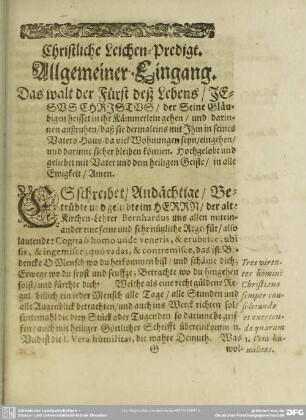 Christliche Leichen-Predigt.
Allgemeiner Eingang.
Das walt der Fürst deß Lebens / JE-
SVS CHRISTVS / der Seine Gläu-
bigen heisset in ihr Kämmerlein gehen / und darin-
nen außruhen / daß sie dermaleins mit Ihm in seines
Vaters Haus / da viel Wohnungen seyn / eingehen /
und darinne sicher bleiben können. Hochgelobt und
geliebet mit Vater und dem heiligen Geiste / in alle
Ewigkeit / Amen.
ES schreibet / Andächtige / Be-
trübte und geliebte im HERRN / der alte
Kirchen-Lehrer Bernhardus uns allen mitein-
ander eine seine und sehr nützliche Regel für / also
lautende: Cogita ô homo unde veneris, & erubesce: ubi
sis, & ingemisce; quò vadas, & contremisce, das ist: Be-
dencke O Mensch wo du herkommen bist / und schäme dich;
Erwege wo du seyst und seuffze; Betrachte wo du hingehen
solst / und fürchte dich: Welche als eine recht güldene Re-
gul billich ein ieder Mensch alle Tage / alle Stunden und
alle Augenblick betrachten / und auch ins Werck richten sol /
sintemahl die drey Stück oder Tugenden so darinne begrif-
fen / auch mit heiliger Göttlicher Schrifft überein kommen.
Und ist die I. Vera humilitas, die wahre Demuth. Was
wol-
Tres virtu-
tes homini
Christiano
semper con-
siderandæ
et exercen-
dæ quarum
1. Vera hu-
militas.